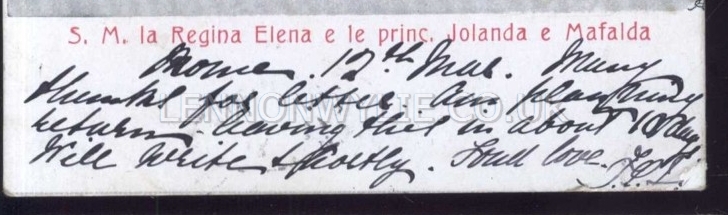 S. M. la Regina Elena e le princ. Jolanda e Mafalda
Rome. 12th Mar. Many
thanks for letter. Am planning
return - leaving this in about 10 days
Will write shortly. Fond love.
LENNONWYLIE.CO.UK